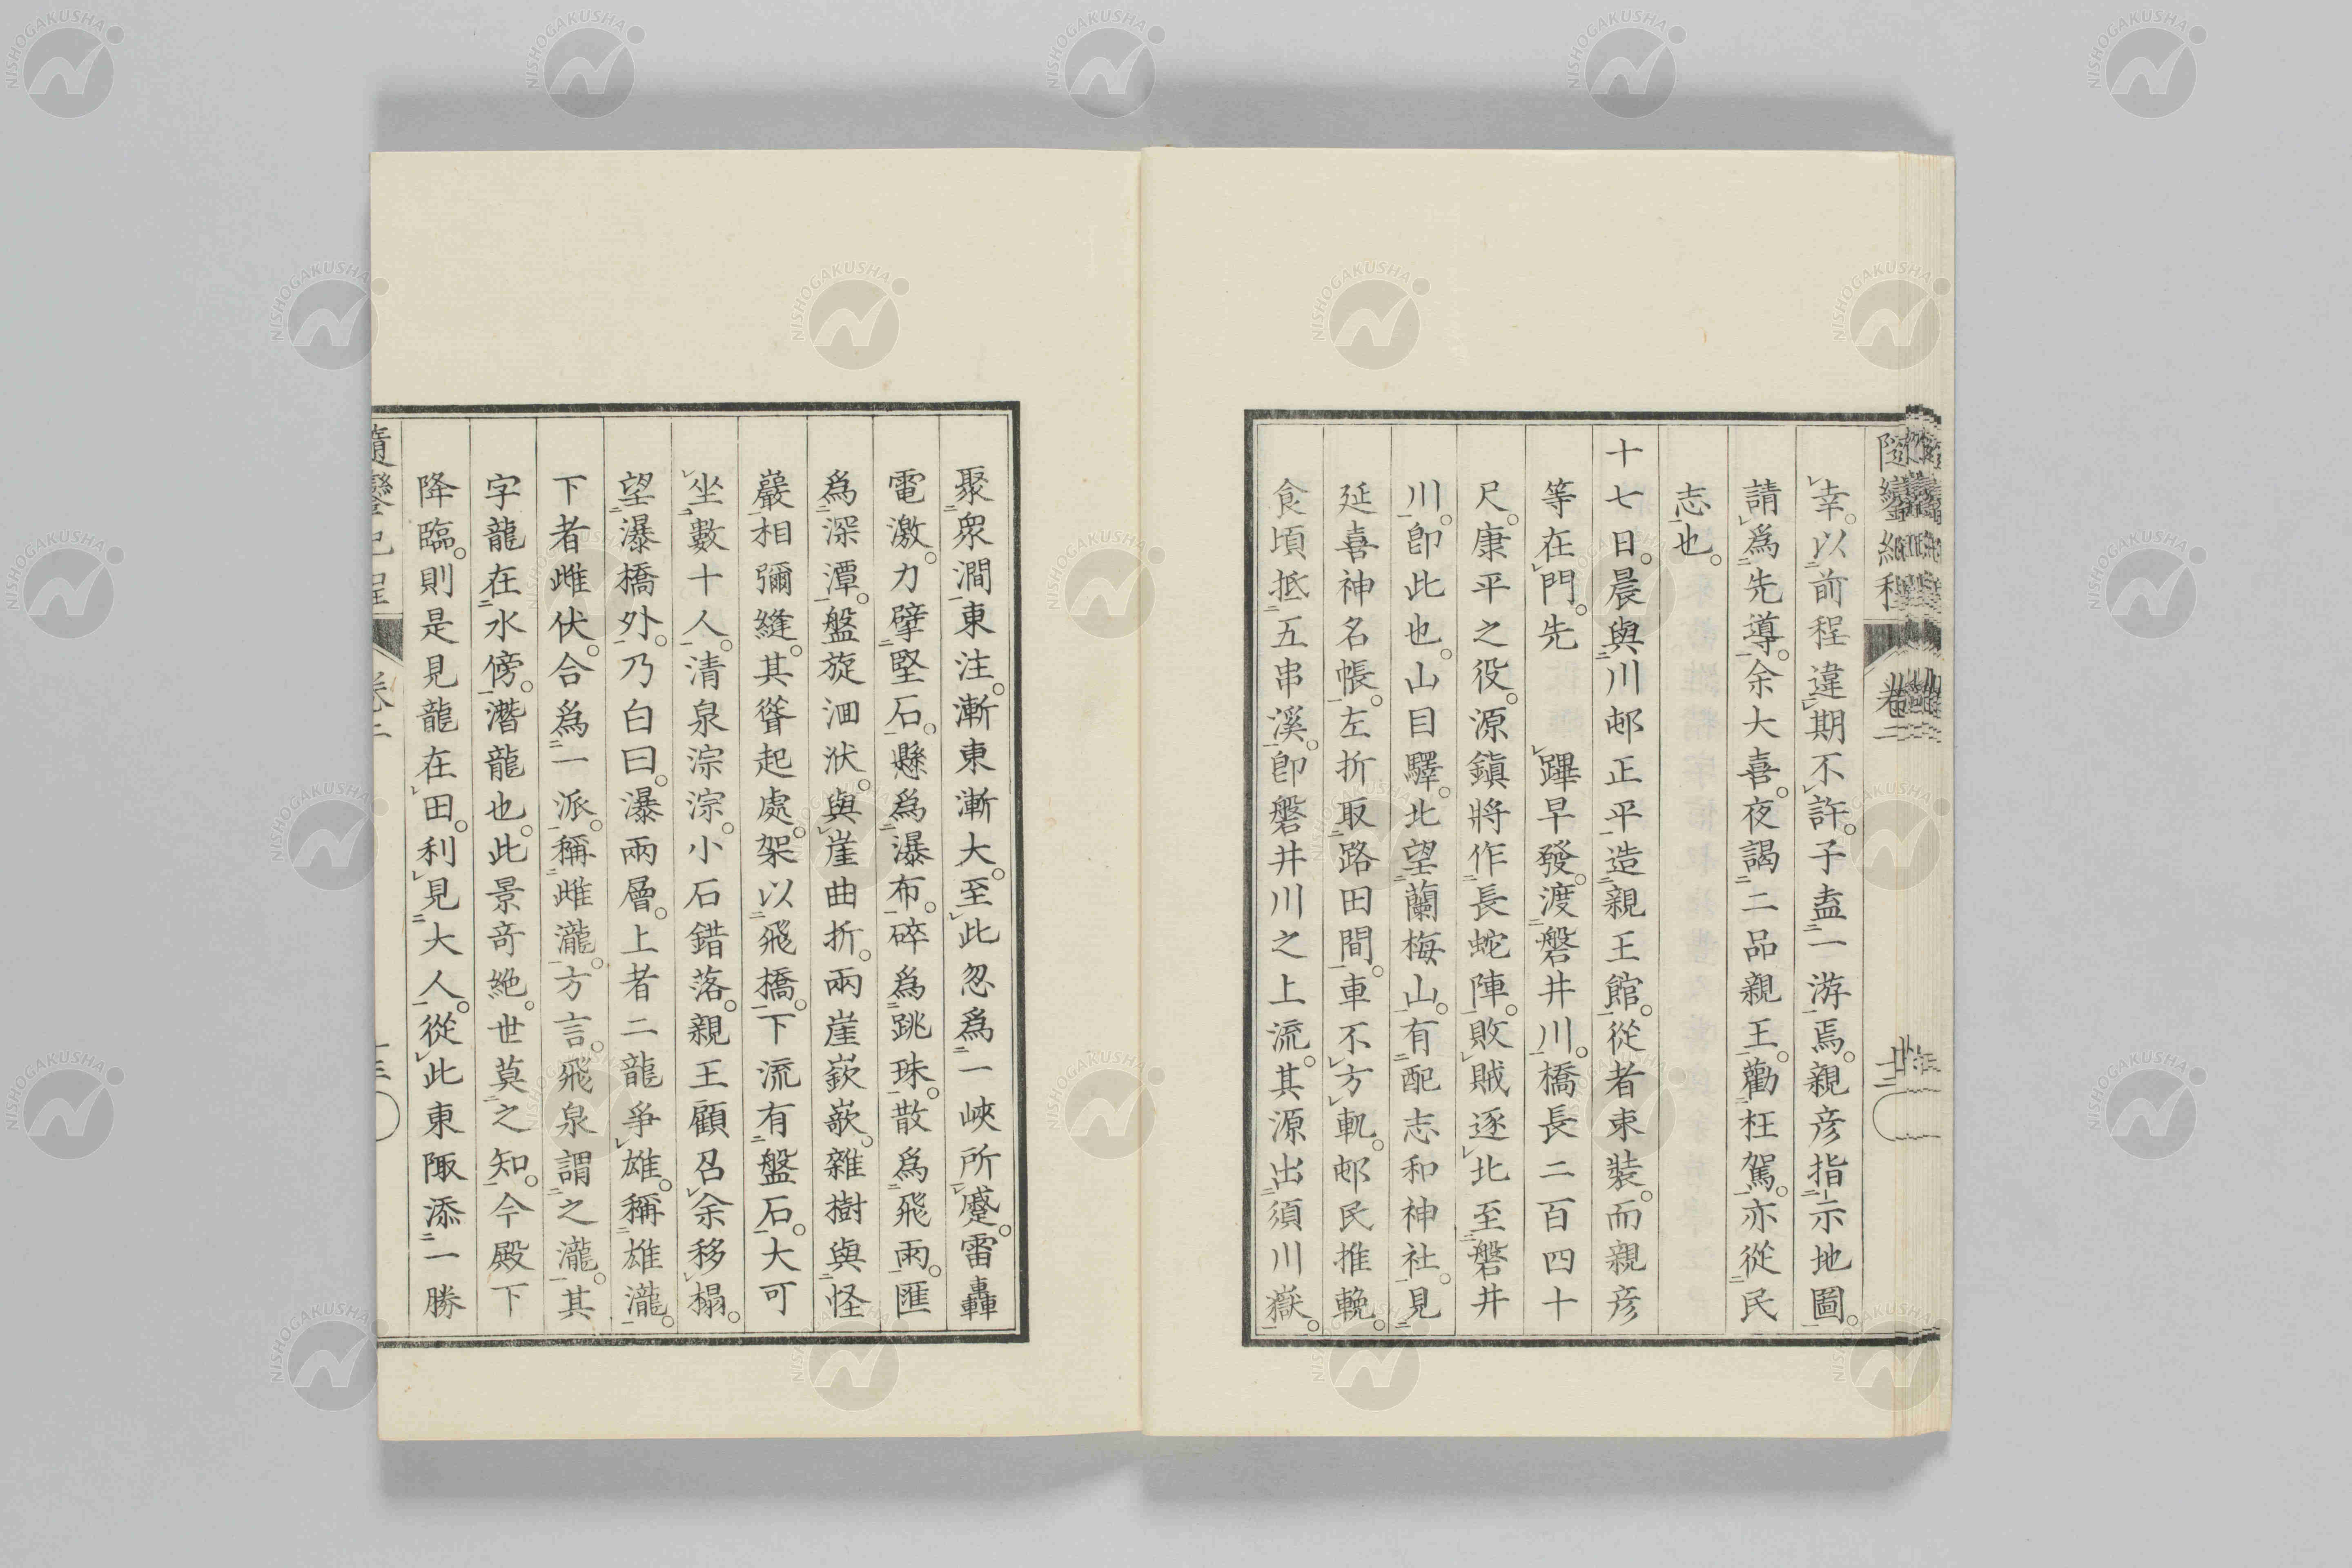 隨鑾紀程 卷二
幸。以前程違期不許。子盍一游焉。親彦指示地圖。
請爲先導。余大喜。夜謁二品親王。勸枉駕。亦從民
志也。
十七日。晨與川邨正平造親王館。從者束裝。而親彦
等在門。先 蹕早發。渡磐井川。橋長二百四十
尺。康平之役。源鎮將作長蛇陣。敗賊逐北至磐井
川。卽此也。山目驛。北望蘭梅山。有配志和神社。見
延喜神名帳。左折取路田間。車不方軌。邨民推輓。
食頃抵五串溪。卽磐井川之上流。其源出須川嶽。
聚衆澗東注。漸東漸大。至此忽爲一峽所蹙。雷轟
電激。力擘堅石。懸爲瀑布。碎爲跳珠。散爲飛雨。匯
爲深潭。盤旋洄洑。與崖曲折。兩崖嶔嶔。雜樹與怪
巖相彌縫。其聳起處。架以飛橋。下流有盤石。大可
坐數十人。清泉淙淙。小石錯落。親王顧召余移榻。
望瀑橋外。乃白曰。瀑兩層。上者二龍爭雄。稱雄瀧。
下者雌伏。合爲一派。稱雌瀧。方言。飛泉謂之瀧。其
字龍在水傍。潛龍也。此景奇絶。世莫之知。今殿下
降臨。則是見龍在田。利見大人。從此東陬添一勝
隨鑾紀程 卷二